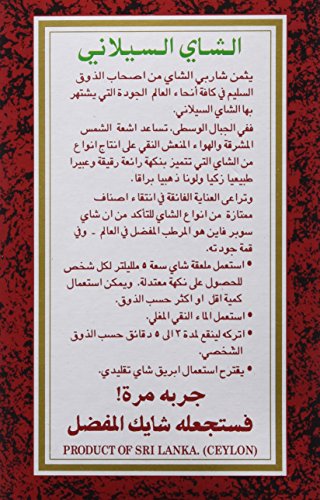 الشاي السيلاني
يثمن شاربي الشاي من اصحاب الذوق
السليم في كافة أنحاء العالم الجودة التي يشتهر
بها الشاي السيلاني.
ففي الجبال الوسطى، تساعد اشعة الشمس
المشرقة والهواء المنعش النقي على انتاج انواع
من الشاي التي تتميز بنكهة رائعة رقيقة وعبيرا
طبيعيا زكيا ولونا ذهبيا براقا.
وتراعى العناية الفائقة في انتقاء اصناف
ممتازة من انواع الشاي للتأكد من ان شاي
سوبر فاين هو المرطب المفضل في العالم - وفي
قمة جودته.
• استعمل ملعقة شاي سعة ٥ ملليلتر لكل شخص
للحصول على نكهة معتدلة. ويمكن استعمال
كمية اقل او اكثر حسب الذوق.
• استعمل الماء النقي المغلي.
• اتركه لينقع لمدة ٣ الى ٥ دقائق حسب الذوق
الشخصي.
• يقترح استعمال ابريق شاي تقليدي.
جربه مرة!
فستجعله شايك المفضل
PRODUCT OF SRI LANKA. (CEYLON)